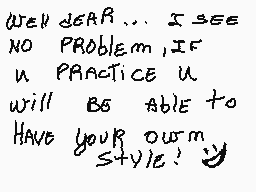 well dEAR... I SEE
NO PROblem, IF
u PRACTiCE U
will BE AblE to
HAVE youR owm
StylE! ツ